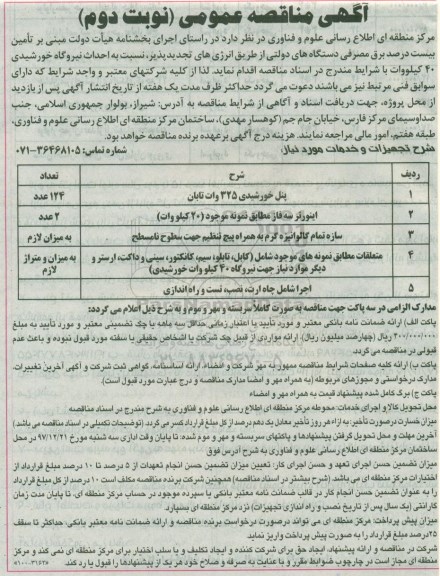 آگهی مناقصه عمومی (نوبت دوم)
مرکز منطقه ای اطلاع رسانی علوم و فناوری در نظر دارد در راستای اجرای بخشنامه هیأت دولت مبنی بر تأمین
بیست درصد برق مصرفی دستگاه های دولتی از طریق انرژی های تجدیدپذیر، نسبت به احداث نیروگاه خورشیدی
۴۰ کیلووات با شرایط مندرج در اسناد مناقصه اقدام نماید. لذا از کلیه شرکتهای معتبر و واجد شرایط که دارای
سوابق فنی مرتبط نیز می باشند دعوت می گردد حداکثر ظرف مدت یک هفته از تاریخ انتشار آگهی پس از بازدید
از محل پروژه، جهت دریافت اسناد و آگاهی از شرایط مناقصه به آدرس: شیراز، بولوار جمهوری اسلامی، جنب
صداوسیمای مرکز فارس، خیابان جام جم (کوهسار مهدی)، ساختمان مرکز منطقه ای اطلاع رسانی علوم و فناوری،
طبقه هفتم، امور مالی مراجعه نمایند. هزینه درج آگهی برعهده برنده مناقصه خواهد بود.
شرح تجهیزات و خدمات مورد نیاز: شماره تماس: ۳۶۴۶۸۱۰۵-۰۷۱
ردیف شرح تعداد
۱ پنل خورشیدی ۳۲۵ وات تابان ۱۲۴ عدد
۲ اینورتر سه فاز مطابق نمونه موجود (۲۰ کیلو وات) ۲ عدد
۳ سازه تمام گالوانیزه گرم به همراه پیچ تنظیم جهت سطوح نامسطح به میزان لازم
۴ متعلقات مطابق نمونه های موجود شامل (کابل، تابلو، سیم، کانکتور، سینی و داکت، ارستر و به میزان و متراژ
دیگر موارد نیاز جهت نیروگاه ۴۰ کیلو وات خورشیدی) لازم
۵ اجرا شامل چاه ارت، نصب، تست و راه اندازی
مدارک الزامی در سه پاکت جهت مناقصه به صورت کاملا سربسته و مهر و موم و به شرح ذیل اعلام می گردد:
پاکت الف) ارائه ضمانت نامه بانکی معتبر و مورد تأیید با اعتبار زمانی حداقل سه ماهه یا چک تضمینی معتبر و مورد تأیید به مبلغ
۴۰۰/۰۰۰/۰۰۰ ریال (چهارصد میلیون ریال). ارائه مواردی از قبیل چک شرکت یا اشخاص حقیقی یا سفته مورد قبول نبوده و باعث عدم
قبولی در مناقصه می گردد.
پاکت ب) ارائه کلیه صفحات شرایط مناقصه ممهور به مهر شرکت و امضاء، ارائه اساسنامه، گواهی ثبت شرکت و آگهی آخرین تغییرات،
مدارک درخواستی و مجوزهای مربوطه (به همراه مهر و امضا مدارک مناقصه و درج عبارت مورد قبول است).
پاکت ج) برگ کامل شده پیشنهاد قیمت به همراه مهر و امضاء
محل تحویل کالا و اجرای خدمات: محوطه مرکز منطقه ای اطلاع رسانی علوم و فناوری به شرح مندرج در اسناد مناقصه
میزان خسارت درصورت تأخیر: به ازاء هر روز تأخیر معادل یک دهم درصد از کل مبلغ قرارداد کسر می گردد. (توضیحات تکمیلی در اسناد مناقصه می باشد)
آخرین مهلت و محل تحویل گرفتن پیشنهادها و پاکتهای سربسته و مهر و موم شده: تا پایان وقت اداری سه شنبه مورخ ۹۷/۱۲/۲۱ در محل
ساختمان مرکز منطقه ای اطلاع رسانی علوم و فناوری به شرح آدرس فوق
میزان تضمین حسن اجرای تعهد و حسن اجرای کار: تعیین میزان تضمین حسن انجام تعهدات از ۵ درصد تا ۱۰ درصد مبلغ قرارداد از
اختیارات مرکز منطقه ای می باشد. (شرح بیشتر در اسناد مناقصه) همچنین شرکت برنده مناقصه مکلف است ۱۰ درصد از کل مبلغ قرارداد
را به عنوان تضمین حسن انجام کار در قالب ضمانت نامه معتبر بانکی یا سپرده موجود در حساب مرکز منطقه ای، تا پایان مدت زمان
گارانتی (یک سال پس از تاریخ نصب و راه اندازی تجهیزات) نزد مرکز منطقه ای بسپارد.
میزان پیش پرداخت: مرکز منطقه ای می تواند درصورت درخواست برنده مناقصه و ارائه ضمانت نامه معتبر بانکی، حداکثر تا سقف
۲۵درصد مبلغ قرارداد را به صورت پیش پرداخت واریز نماید.
شرکت در مناقصه و ارائه پیشنهاد، ایجاد حق برای شرکت کننده و ایجاد تکلیف و یا سلب اختیار برای مرکز منطقه ای نمی کند و مرکز
منطقه ای مجاز است در چارچوب ضوابط مقرر و با عنایت به صرفه و صلاح خود هر یک از پیشنهادها را قبول یا رد کند.